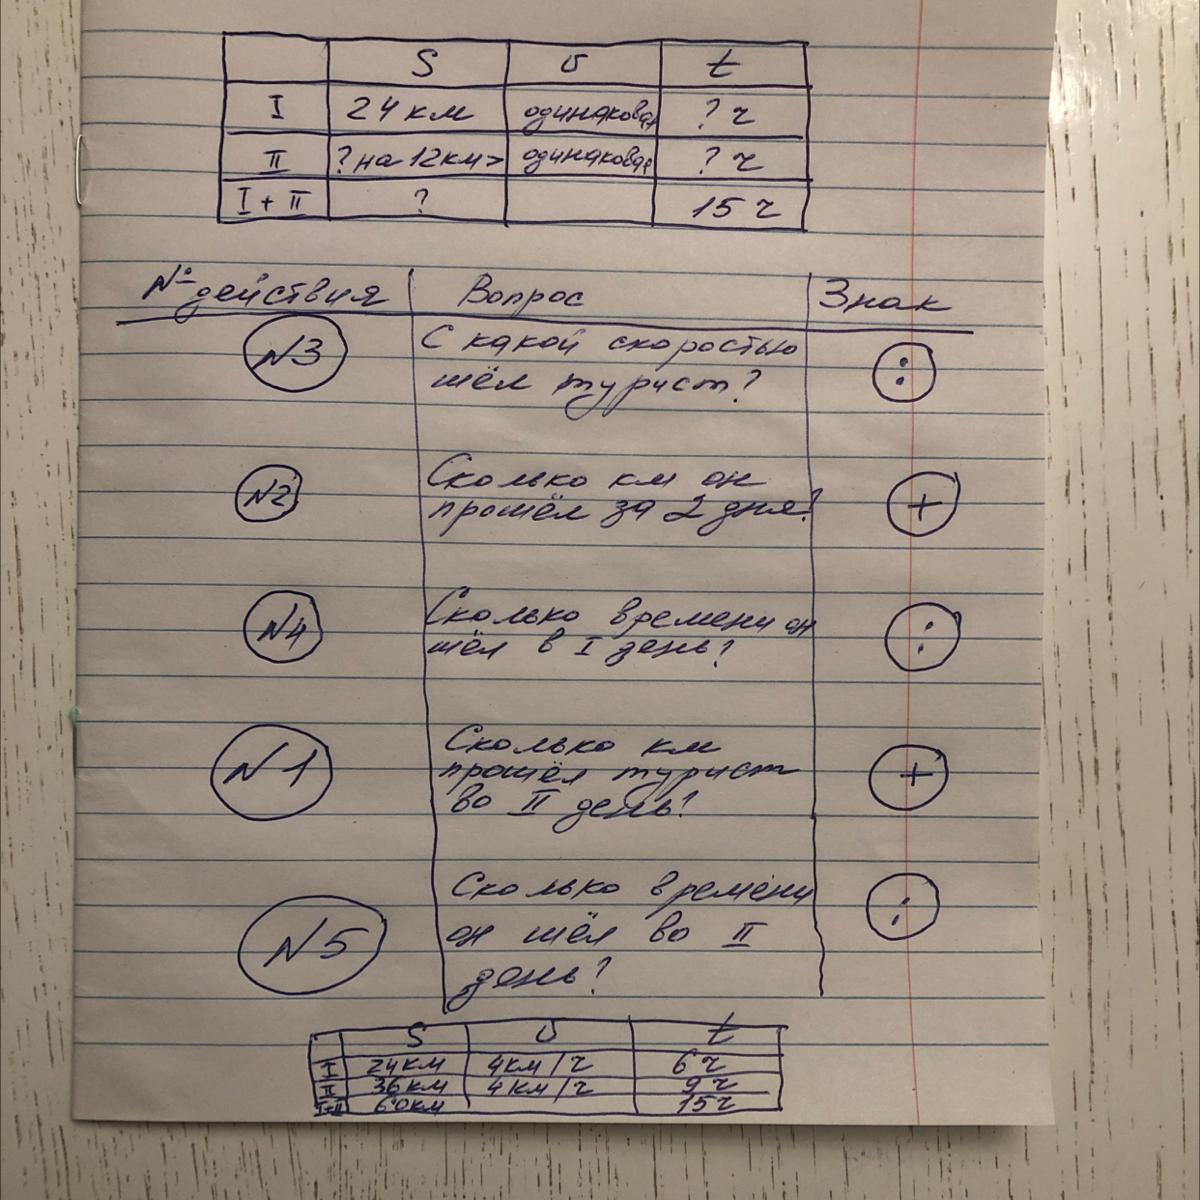 S v t
I 24 км одинаковая ? ч
II ? на 12км> одинаковая ? ч
I + II ? 15 ч
№ действия Вопрос Знак
N3 С какой скоростью :
шёл турист?
N2 Сколько км он +
прошёл за 2 дня?
N4 Сколько времени он :
шёл в I день?
N1 Сколько км +
прошёл турист
во II день?
N5 Сколько времени :
он шёл во II
день?
S v t
I 24км 4км/ч 6ч
II 36км 4км/ч 9ч
I+II 60км 15ч